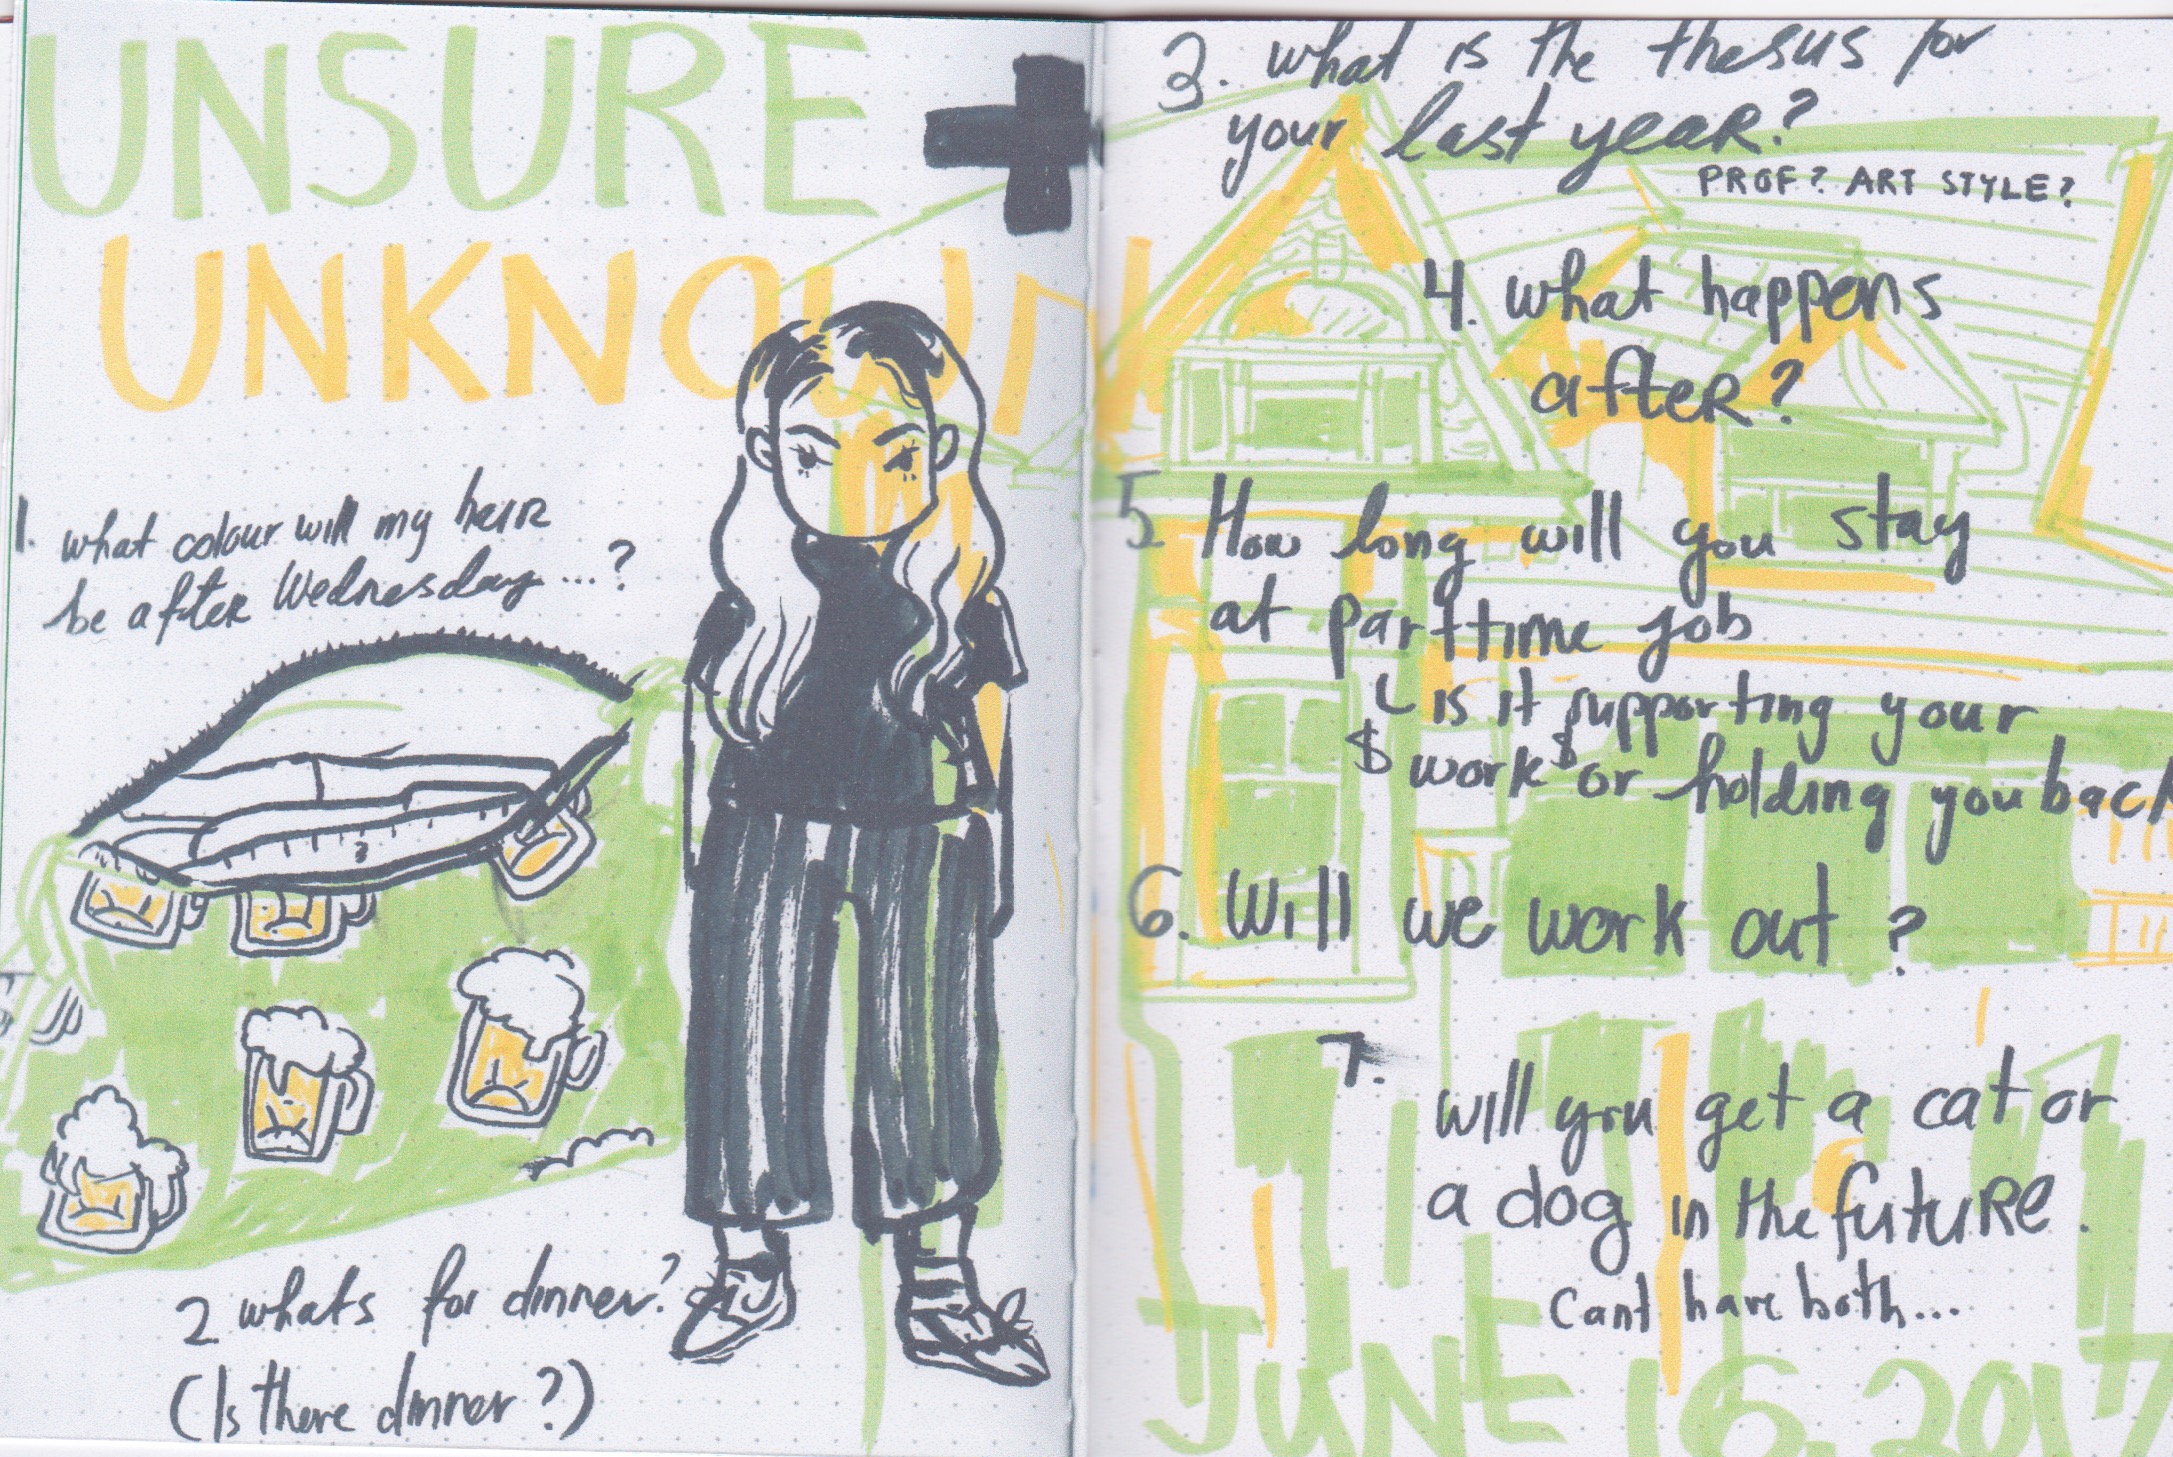 UNSURE +
UNKNOWN
1. what colour will my hair
be after Wednesday...?
2 whats for dinner?
(Is there dinner?)
3. what is the thesus for
your last year?
PROF? ART STYLE?
4. what happens
after?
5 How long will you stay
at parttime job
is it supporting your
$ work $ or holding you back
6. Will we work out?
7.
will you get a cat or
a dog in the future.
cant have both...
JUNE 16, 2017